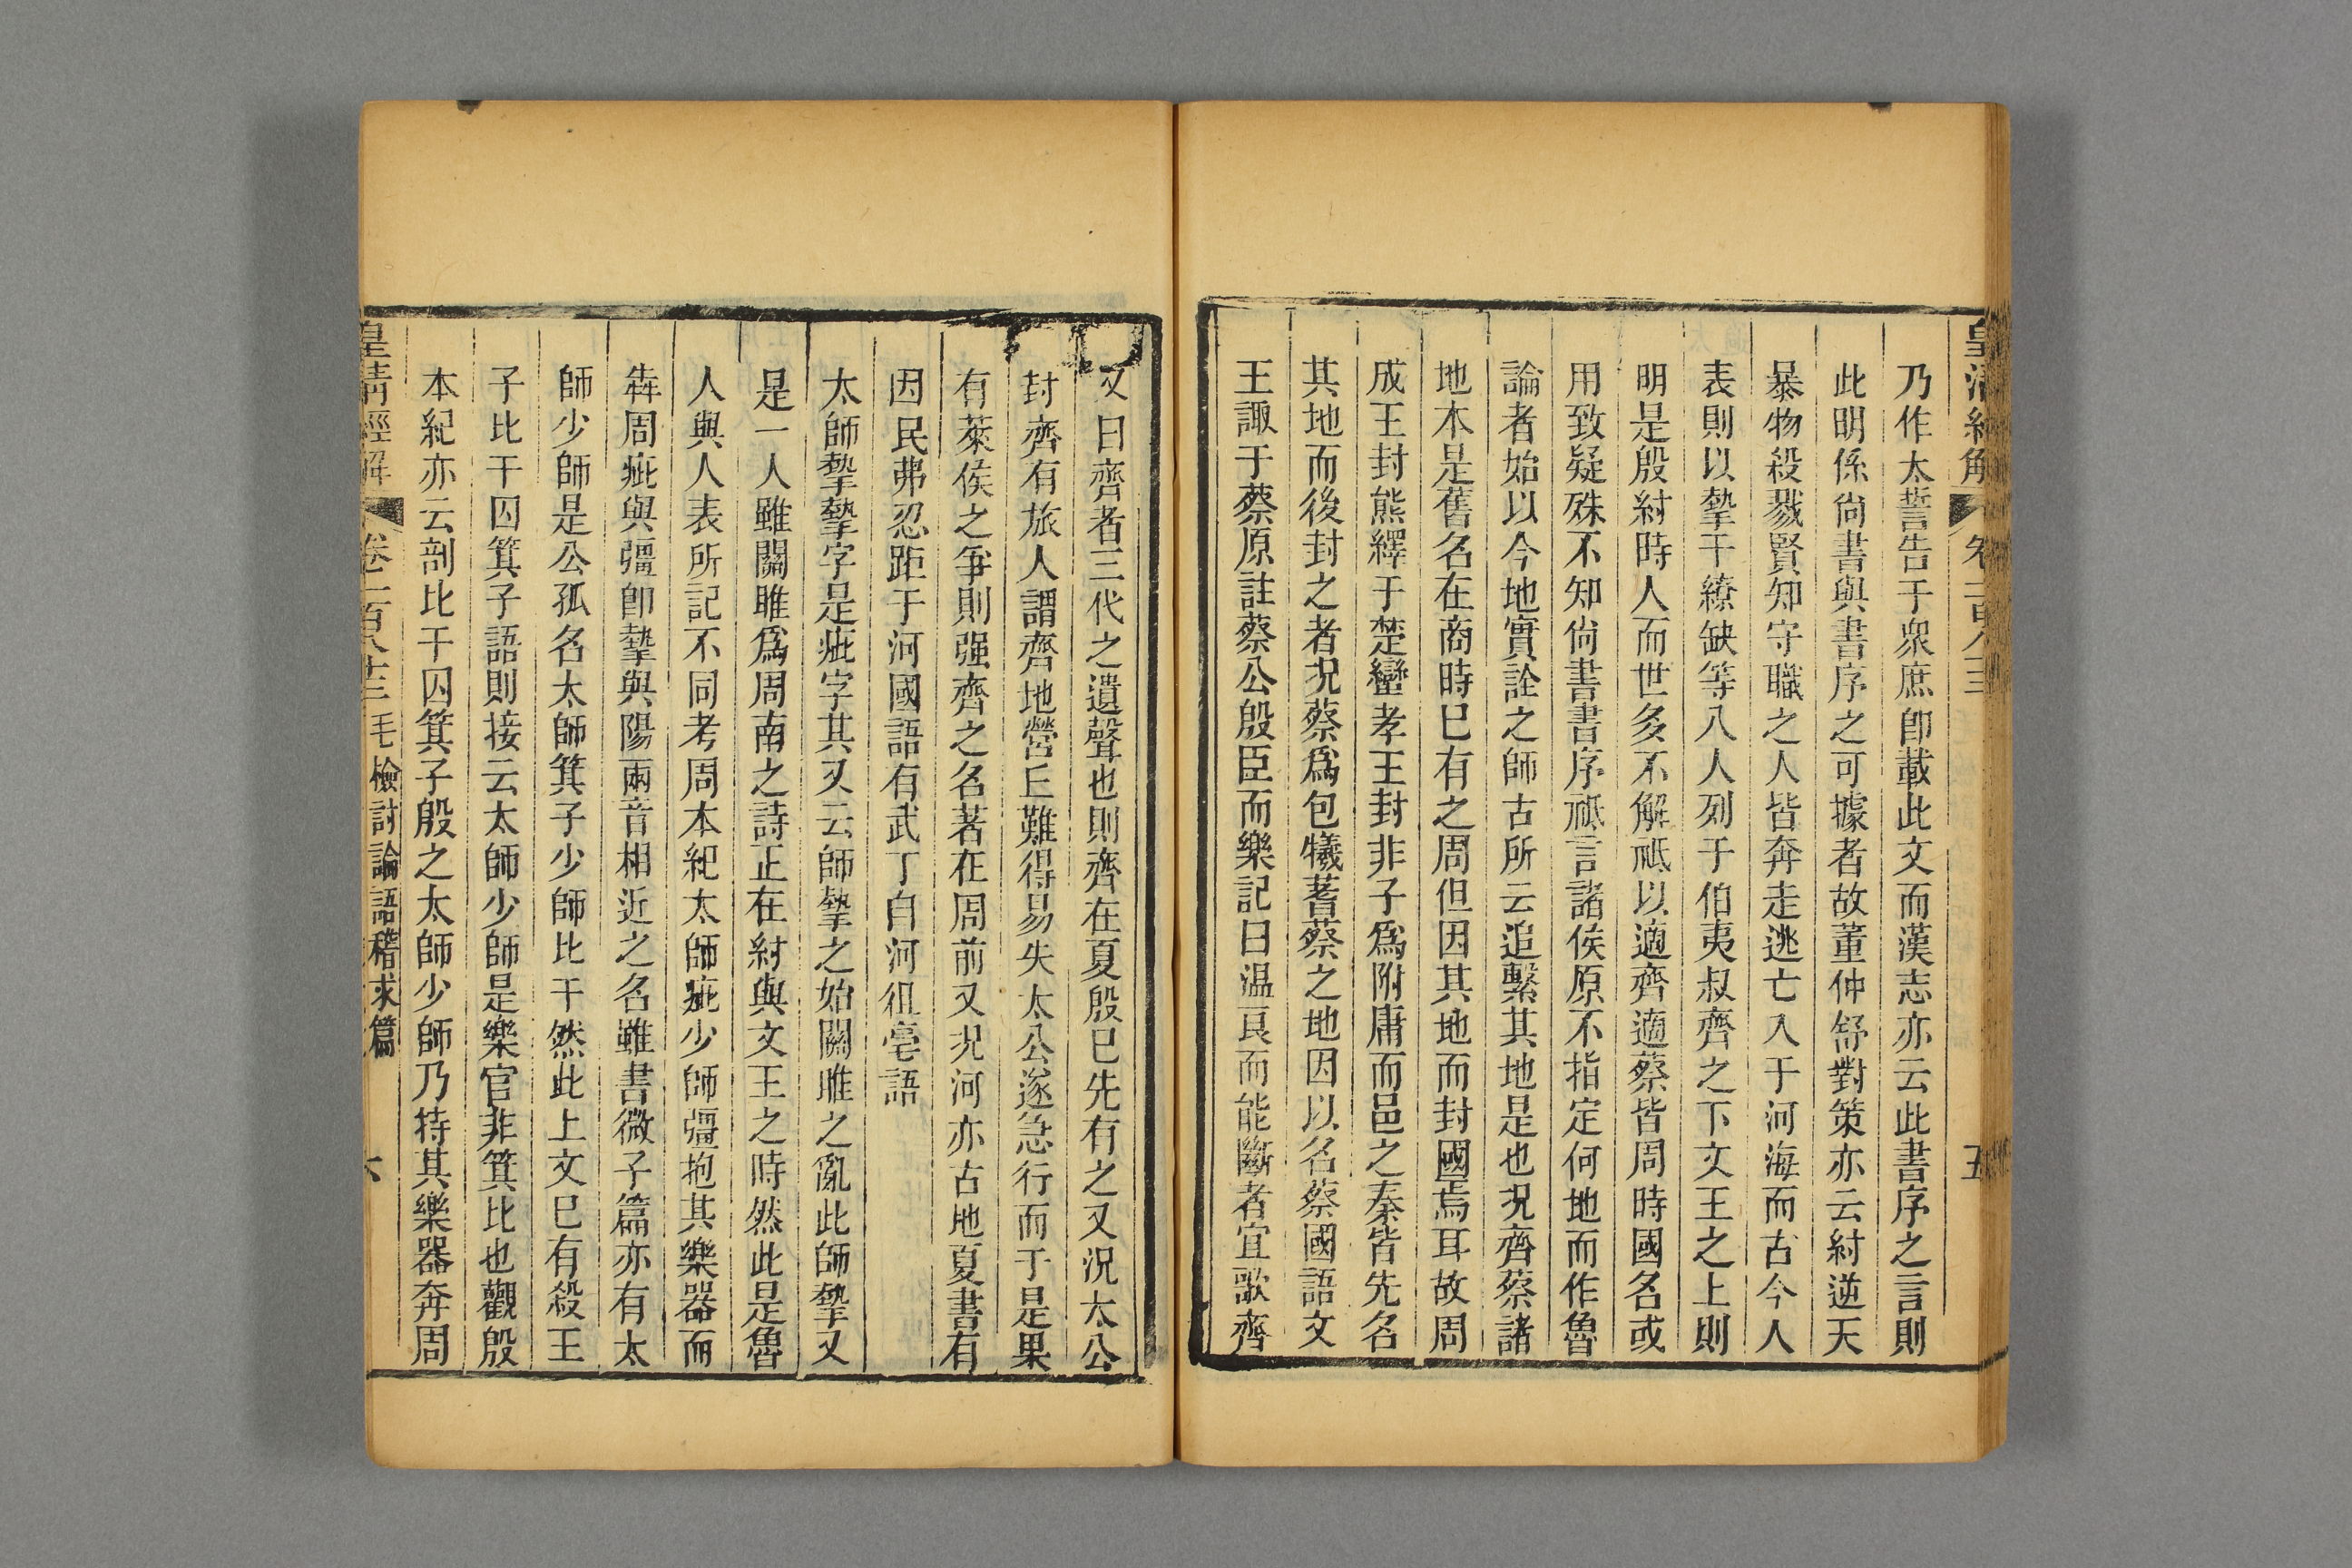 皇清經解 卷一百八十三 五
乃作太誓告于衆庶卽載此文而漢志亦云此書序之言則
此明係尙書與書序之可據者故董仲舒對策亦云紂逆天
暴物殺戮賢知守職之人皆奔走逃亡入于河海而古今人
表則以摯干繚缺等八人列于伯夷叔齊之下文王之上則
明是殷紂時人而世多不解祗以適齊適蔡皆周時國名或
用致疑殊不知尙書書序祗言諸侯原不指定何地而作魯
論者始以今地實詮之師古所云追繫其地是也況齊蔡諸
地本是舊名在商時巳有之周但因其地而封國焉耳故周
成王封熊繹于楚蠻孝王封非子爲附庸而邑之秦皆先名
其地而後封之者況蔡爲包犧蓍蔡之地因以名蔡國語文
王諏于蔡原註蔡公殷臣而樂記曰溫良而能斷者宜歌齊
又曰齊者三代之遺聲也則齊在夏殷巳先有之又況太公
封齊有旅人謂齊地營丘難得易失太公遂急行而于是果
有萊侯之爭則强齊之名著在周前又況河亦古地夏書有
因民弗忍距于河國語有武丁自河徂亳語
太師摯摯字是疵字其又云師摯之始關雎之亂此師摯又
是一人雖關雎爲周南之詩正在紂與文王之時然此是魯
人與人表所記不同考周本紀太師疵少師彊抱其樂器而
犇周疵與彊卽摯與陽兩音相近之名雖書微子篇亦有太
師少師是公孤名太師箕子少師比干然此上文巳有殺王
子比干囚箕子語則接云太師少師是樂官非箕比也觀殷
本紀亦云剖比干囚箕子殷之太師少師乃持其樂器奔周
皇清經解 卷一百八十三 毛檢討論語稽求篇 六